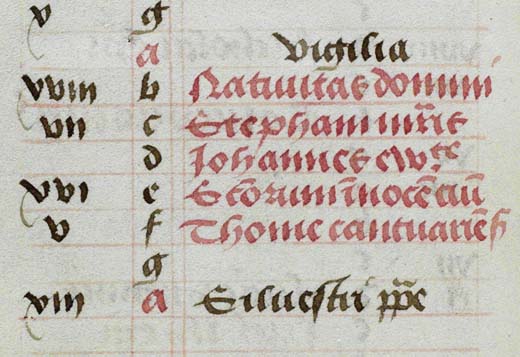 v g
a Vigilia
xviii b Natiuitas domini
vii c Stephani mr̄is
d Johannes ewᵗᵉ
xvi e Scōrum īnocēciū
v f Thome cantuariēs
g
xiii a Siluestri pp̄e